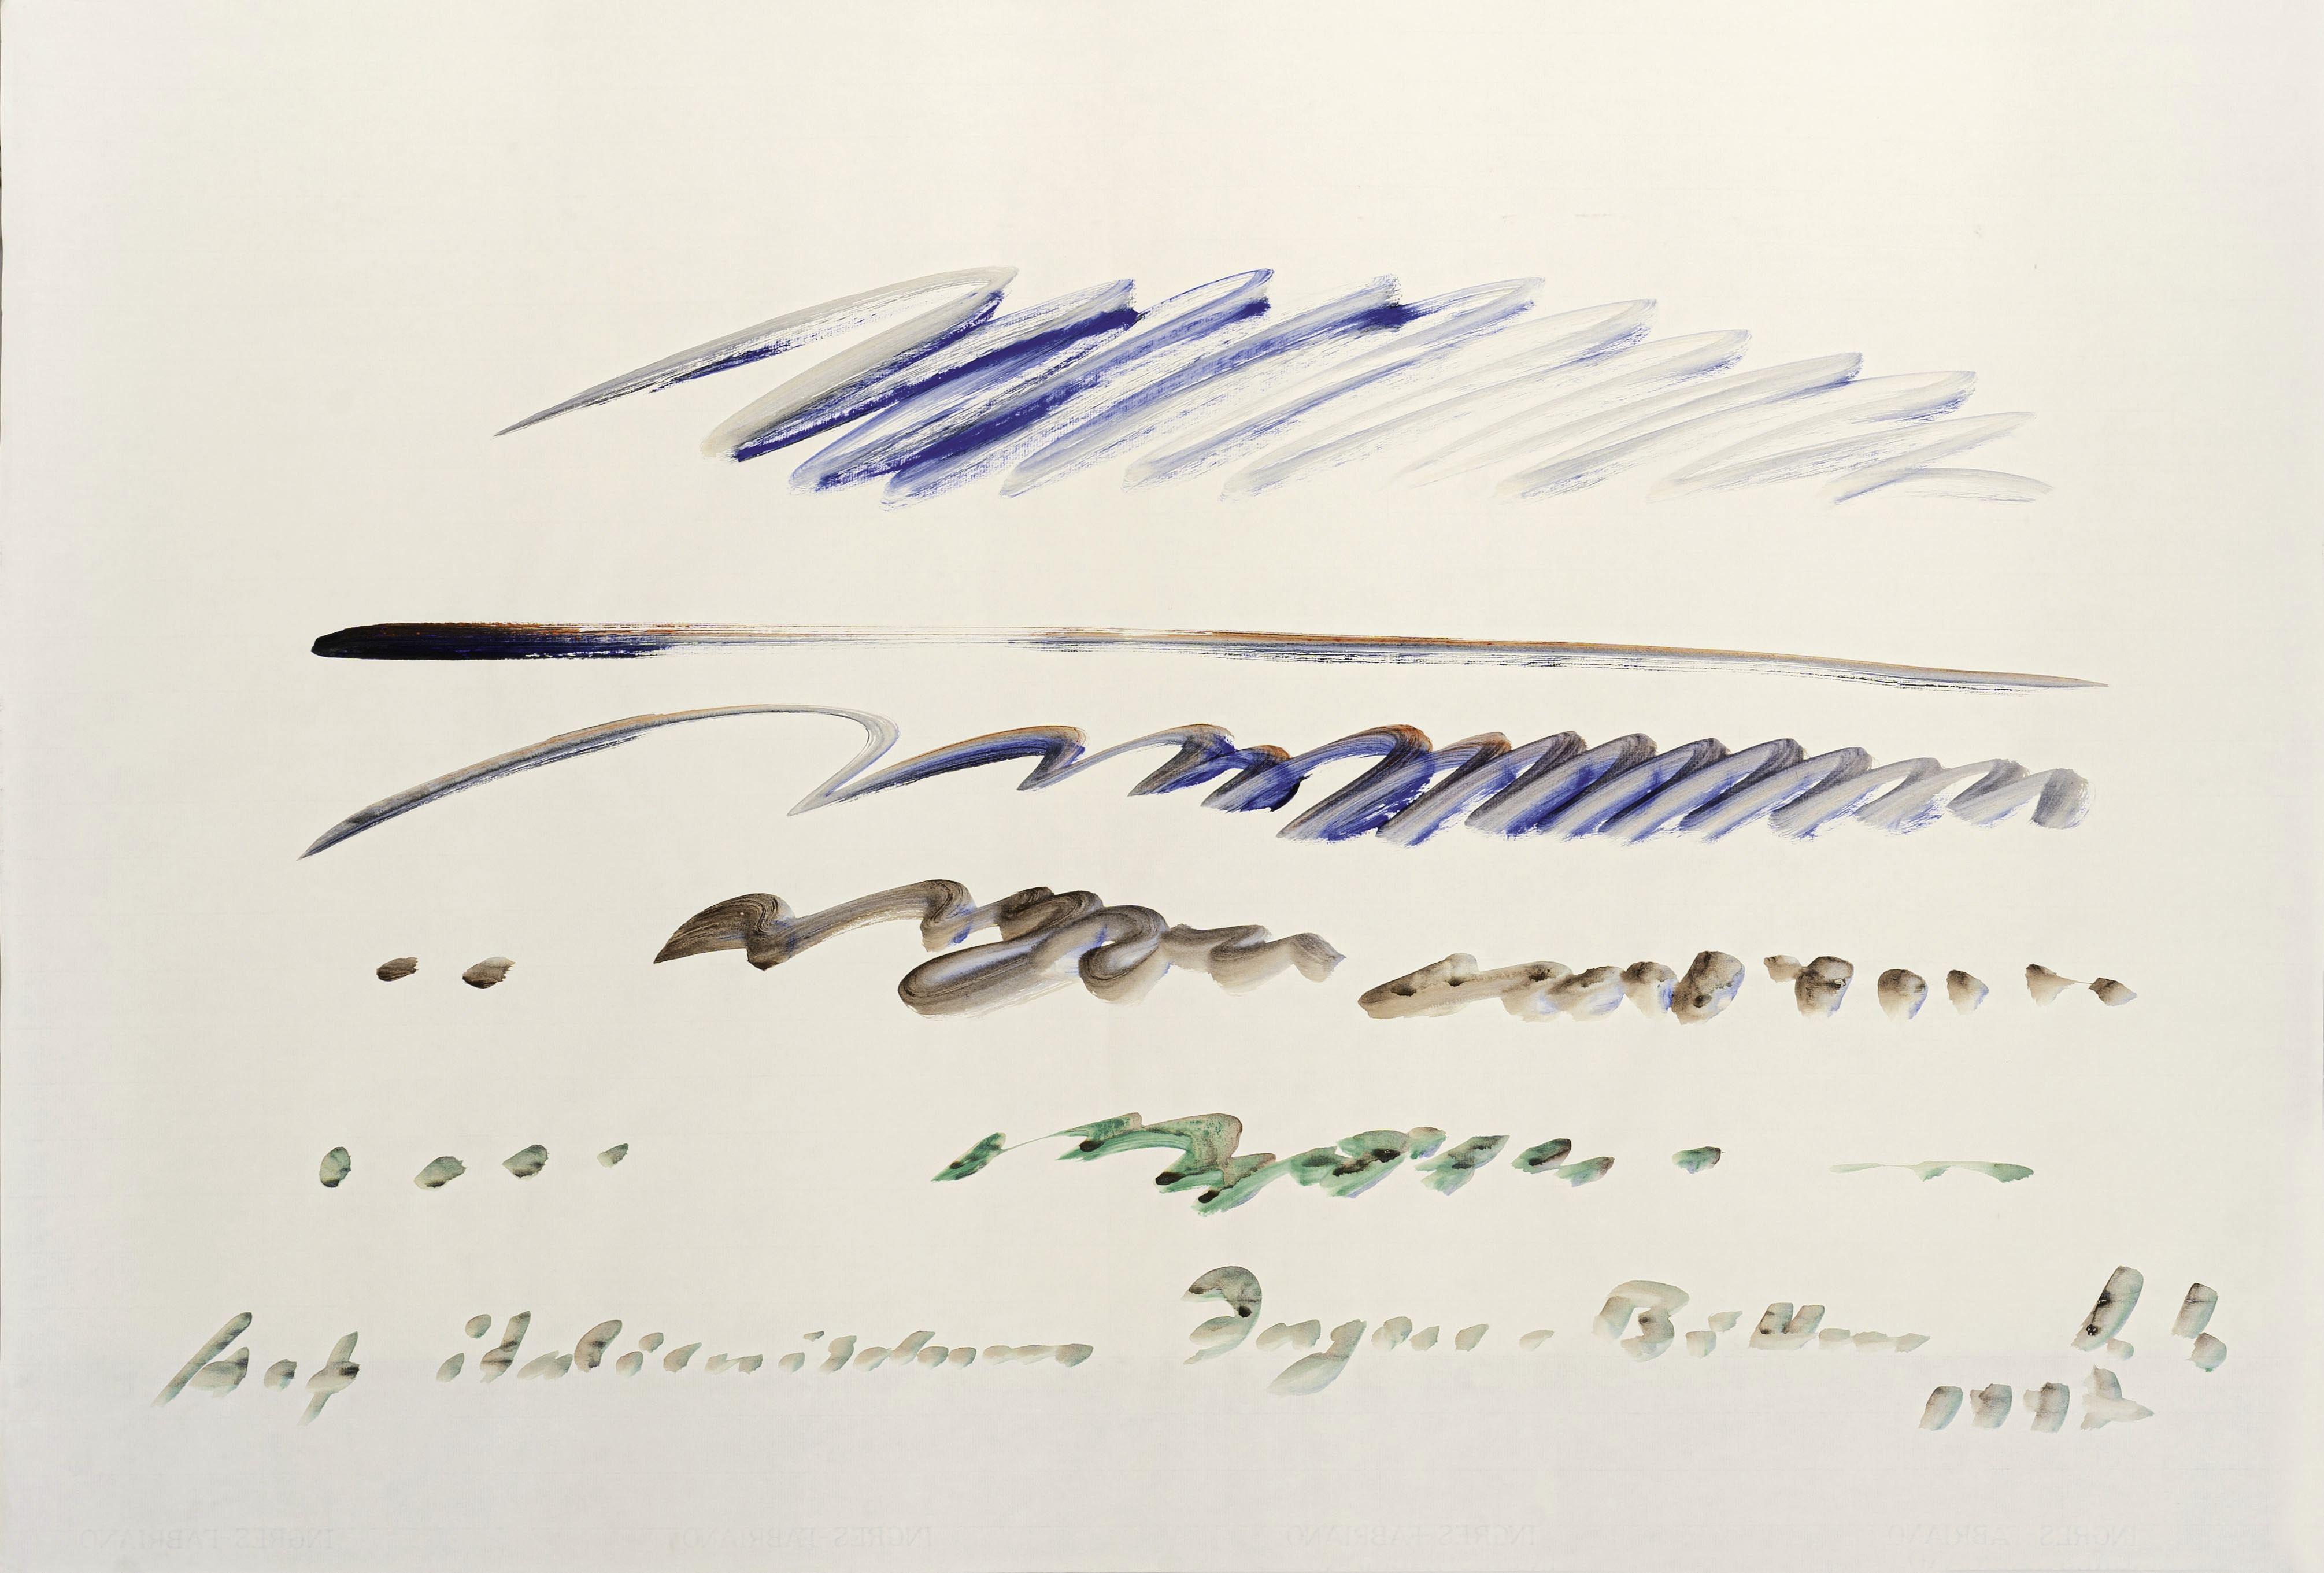 Auf italienischem Ingres-Bütten
1992
INGRES FABRIANO INGRES FABRIANO INGRES FABRIANO INGRES FABRIANO